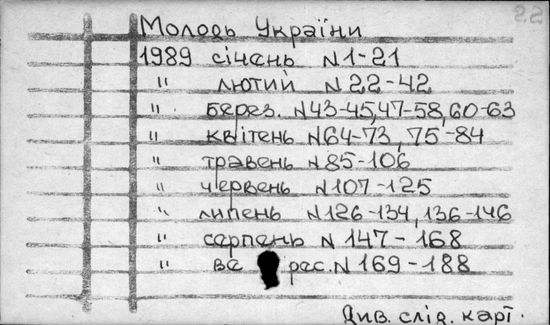 22
Молодь України
1989 січень N 1-21
" лютий N 22-42
" берез. N 43-45, 47-58, 60-63
" квітень N 64-73, 75-84
" травень N 85-106
" червень N 107-125
" липень N 126-134, 136-146
" серпень N 147-168
" ве рес. N 169-188
Див. слід. карт.